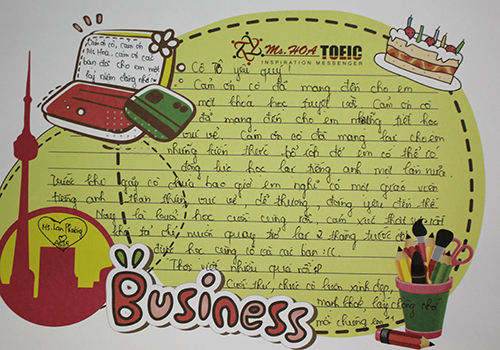 Cảm ơn cô, cảm ơn
Ms Hoa, cảm ơn các
bạn đã cho em một
kỷ niệm đáng nhớ
Ms. HOA TOEIC
INSPIRATION MESSENGER
Cô Tồ yêu quý!
Cảm ơn cô đã mang đến cho em
một khoá học tuyệt vời. Cảm ơn cô
đã mang đến cho em những tiết học
vui vẻ. Cảm ơn cô đã mang lại cho em
những kiến thức bổ ích để em có thể có
động lực học lại tiếng anh một lần nữa.
Trước khi gặp cô chưa bao giờ em nghĩ có một giáo viên
tiếng anh thân thiện, vui vẻ, dễ thương, đáng yêu đến thế.
Nay là buổi học cuối cùng rồi, cảm xúc thật
khó tả chỉ muốn quay trở lại 2 tháng trước để
được học cùng cô và các bạn :((
Thôi viết nhiều quá rồi :P
Cuối thư, chúc cô luôn xinh đẹp,
mạnh khoẻ
Ms. Lan Phương
Business